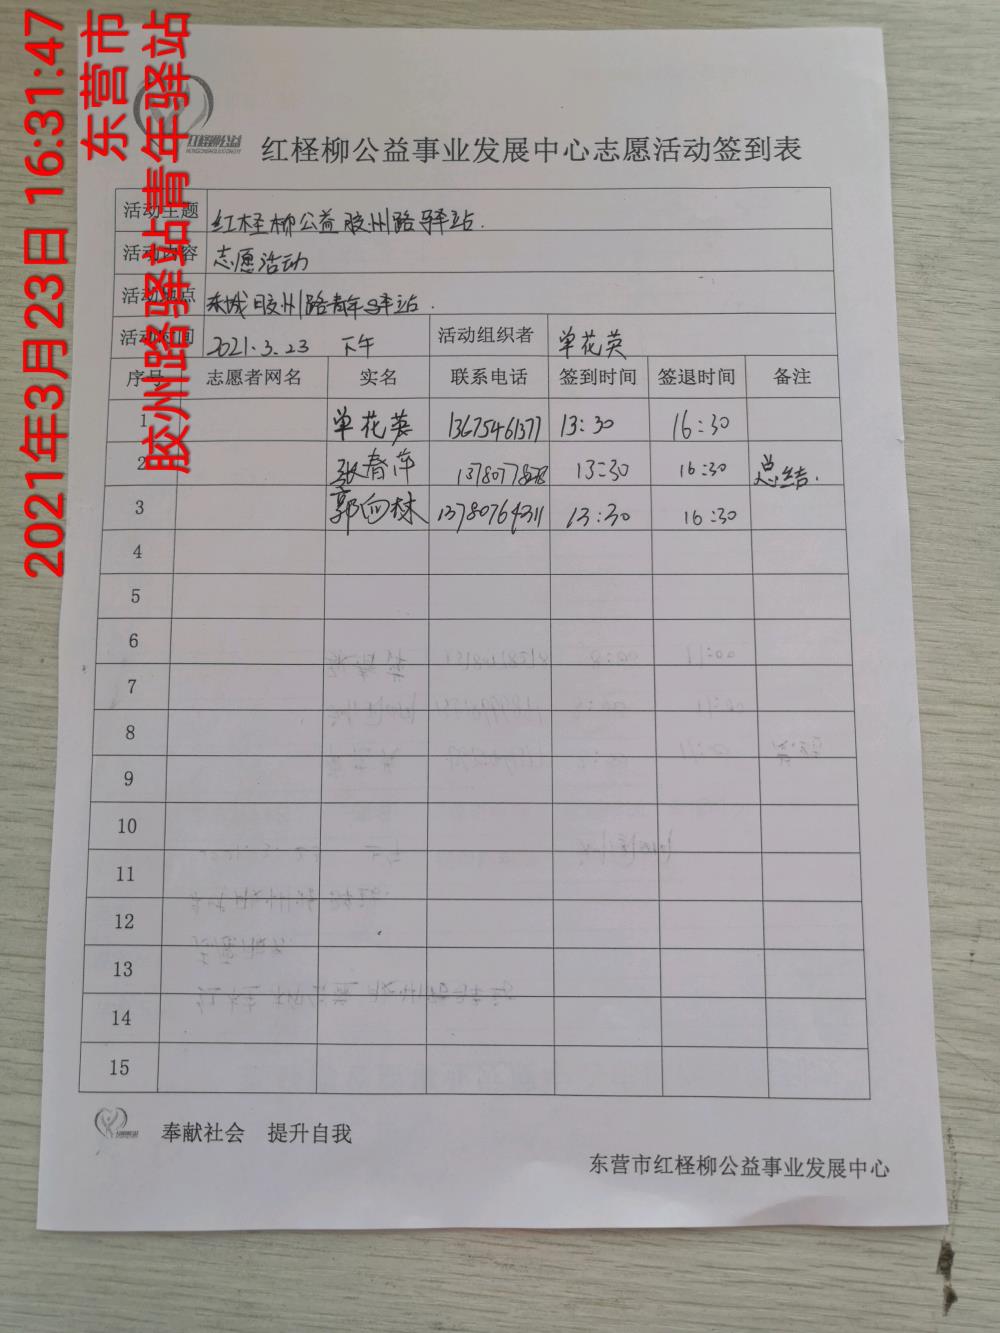 2021年3月23日 16:31:47
东营市
胶州路驿站青年驿站
红柽柳公益
红柽柳公益事业发展中心志愿活动签到表
活动主题 红柽柳公益胶州路驿站.
活动内容 志愿活动
活动地点 东城胶州路青年驿站.
活动时间 2021.3.23 下午 活动组织者 单花英
序号 志愿者网名 实名 联系电话 签到时间 签退时间 备注
1 单花英 13675461377 13:30 16:30
2 张春萍 13:30 16:30 总结.
3 郭向林 13780764311 13:30 16:30
4
5
6
7
8
9
10
11
12
13
14
15
奉献社会 提升自我
东营市红柽柳公益事业发展中心